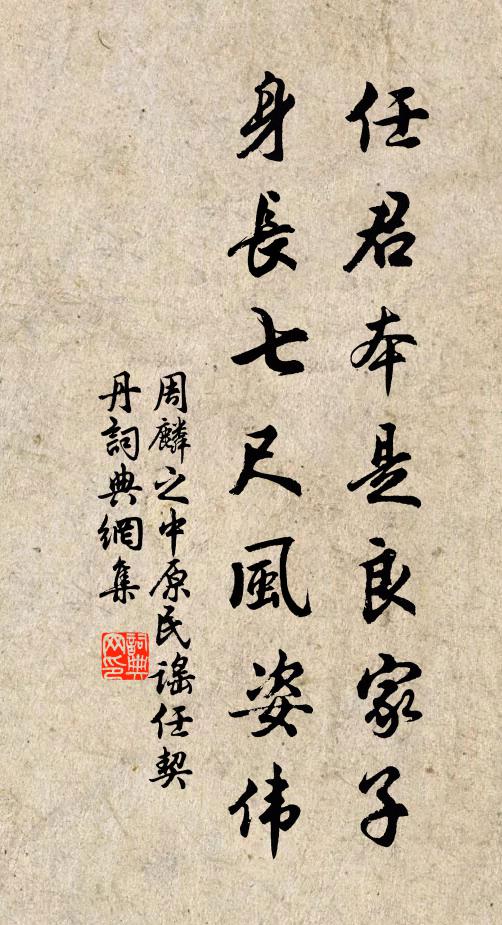 任君本是良家子
身長七尺風姿伟
周麟之中原民謠任契
丹詞典網集
詞典网印